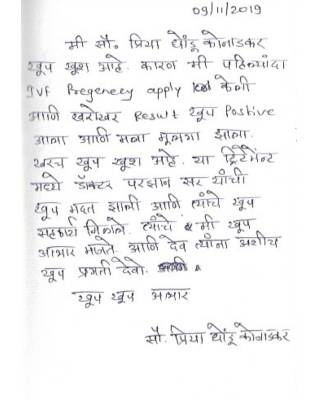 09/11/2019
मी सौ. प्रिया धोंडू कोनाडकर
खूप खूश आहे. कारण मी पहिल्यांदा
IVF Pregenecy apply केली
आणि खरोखर Result खूप Postive
आला आणि मला मुलगा झाला.
खरच खूप खूश आहे. या ट्रिटमेंट
मध्ये डॉक्टर परझान सर यांची
खूप मदत झाली आणि त्यांचे खूप
सहकार्य मिळाले. त्यांचे मी खूप
आभार मानते. आणि देव त्यांना अशीच
खूप प्रगती देवो.
खूप खूप आभार
सौ. प्रिया धोंडू कोनाडकर